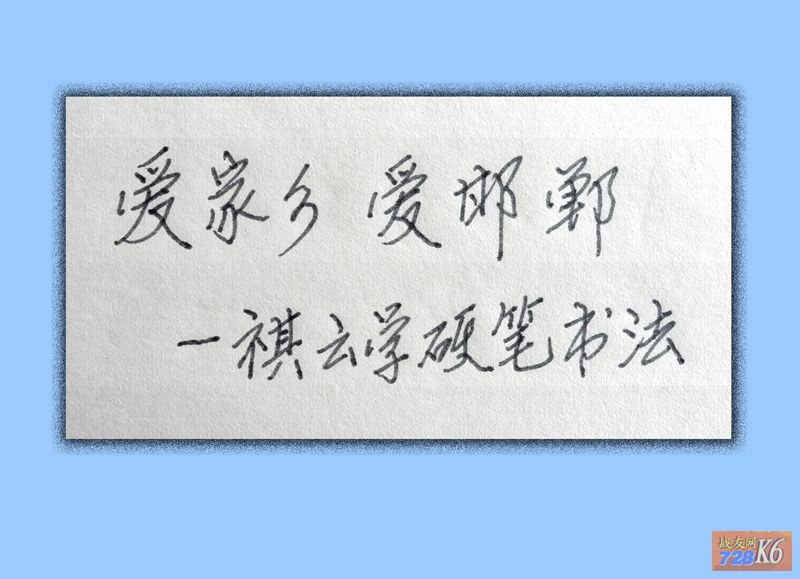 爱家乡 爱邯郸
一祺云学硬笔书法
战友网
728K6